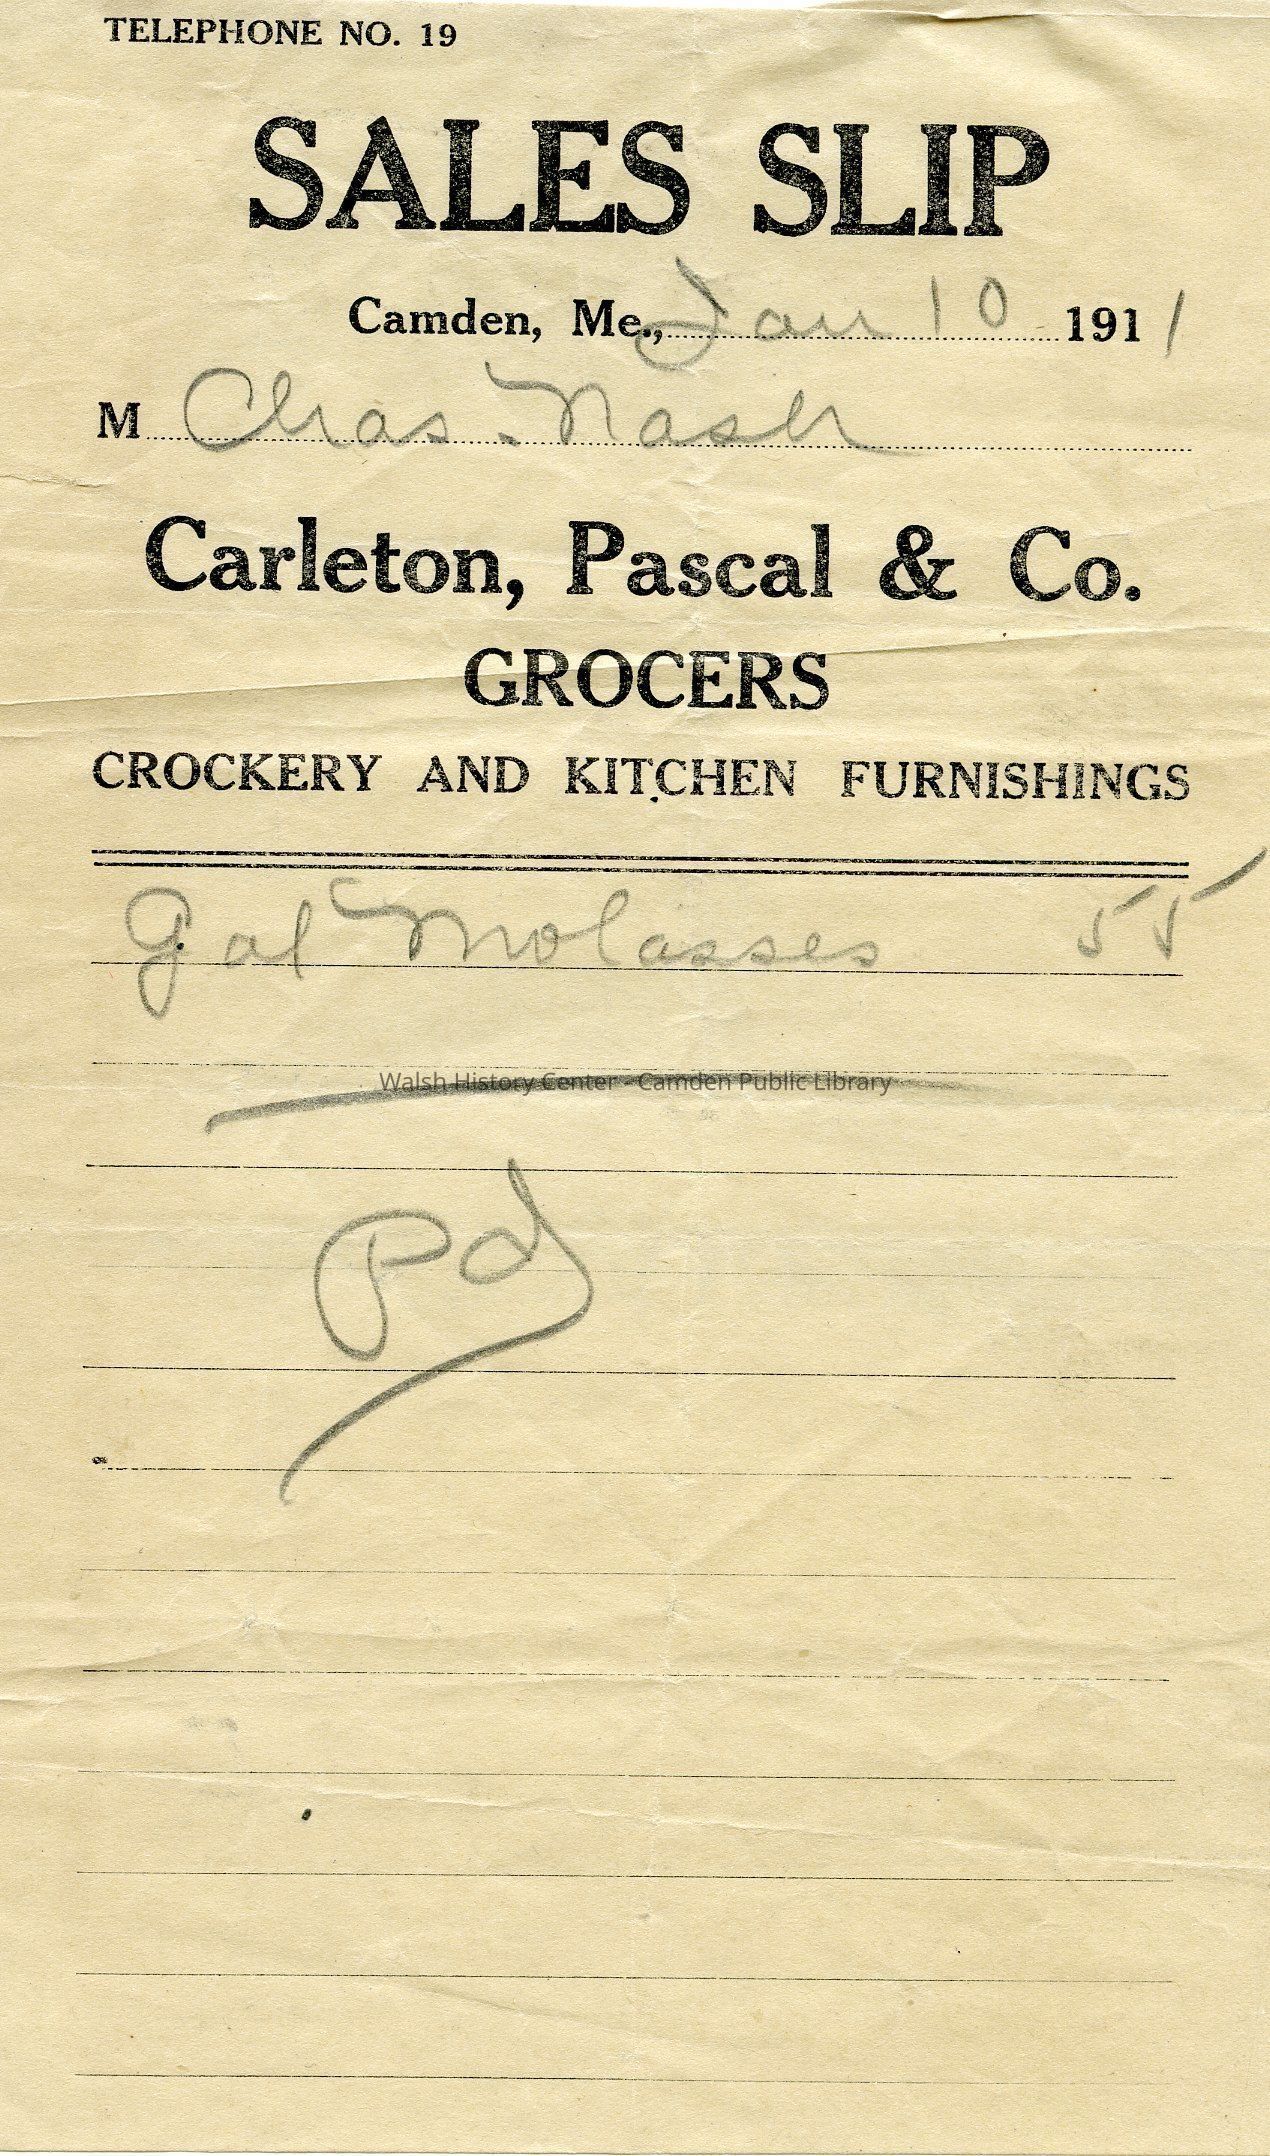 TELEPHONE NO. 19
SALES SLIP
Camden, Me., Jan 10 1911
M Chas. Nash
Carleton, Pascal & Co.
GROCERS
CROCKERY AND KITCHEN FURNISHINGS
Gal Molasses 55
Walsh History Center - Camden Public Library
Pd